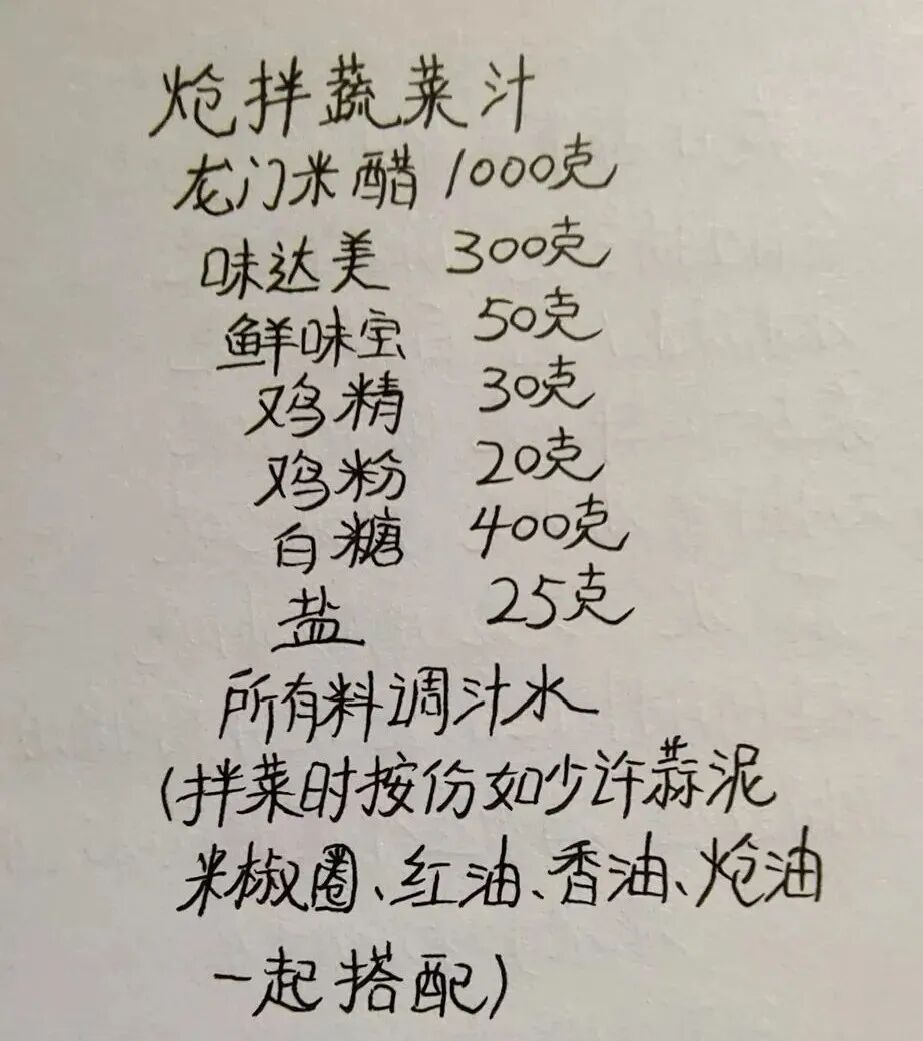 炝拌蔬菜汁
龙门米醋 1000克
味达美 300克
鲜味宝 50克
鸡精 30克
鸡粉 20克
白糖 400克
盐 25克
所有料调汁水
(拌菜时按份如少许蒜泥
米椒圈、红油、香油、炝油
一起搭配)